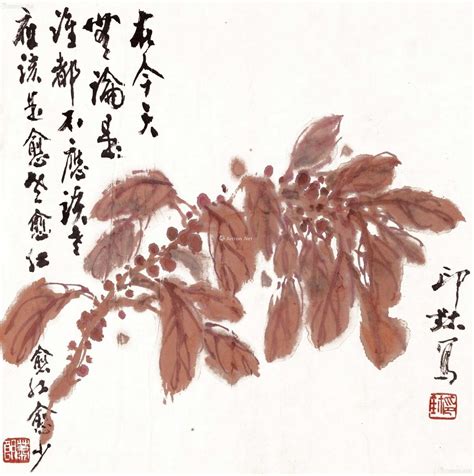 在今天
無論是
誰都不應該老
應該是愈老愈红
愈红愈少
印鉥寫
Artron.Net